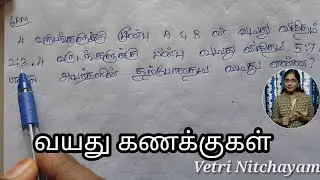 4 வருடங்களுக்கு முன்பு A & B ன் வயது விகிதம்
2:3. 4 வருடங்களுக்கு பின்பு வயது விகிதம் 5:7.
எனில் அவர்களின் தற்போதைய வயது என்ன?
வயது கணக்குகள்
Vetri Nitchayam